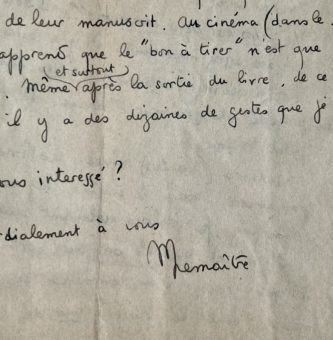 de leur manuscrit. Au cinéma (dans le
apprend que le "bon à tirer" n'est que
et surtout
même après la sortie du livre, de ce
il y a des dizaines de gestes que je
ous interessé ?
dialement à vous